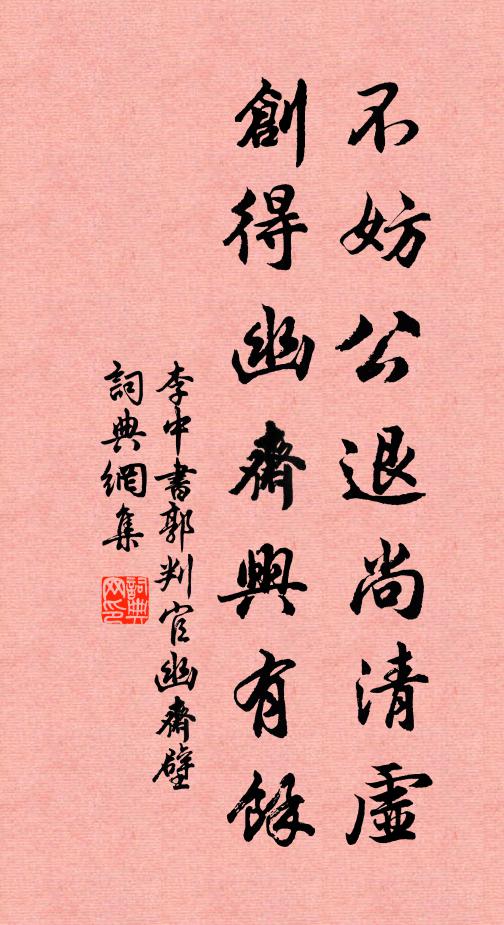 不妨公退尚清虛
創得幽齋興有餘
李中書郭判官幽齋壁
詞典網集
詞典網印